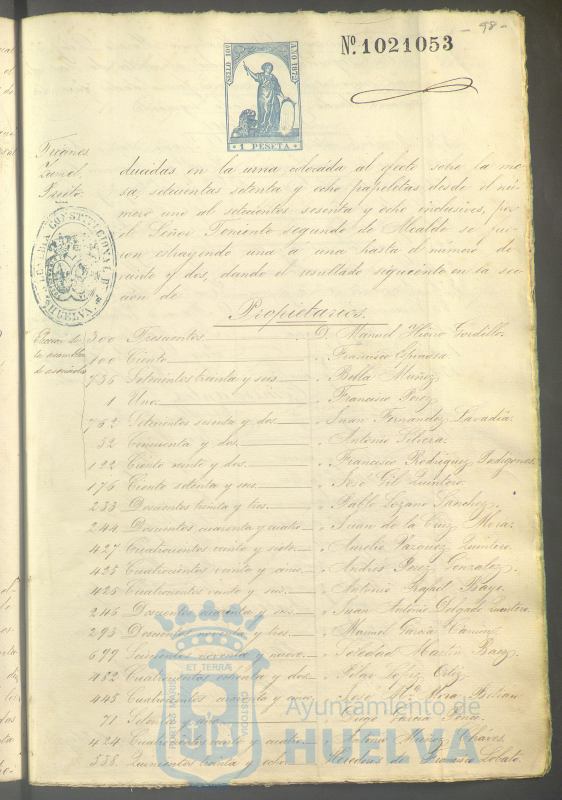 98
Nº 1021053
SELLO 10º AÑO 1872
1 PESETA
ducidas en la urna colocada al efecto sobre la me-
sa, setecientas setenta y ocho papeletas desde el nú-
mero uno al setecientos sesenta y ocho inclusives, por
el Señor Teniente segundo de Alcalde se fue-
ron estrayendo una a una hasta el número de
veinte y dos, dando el resultado siguiente en la sec-
cion de
ALCALDIA CONSTITUCIONAL DE HUELVA
Propietarios.
Eleccion de
la asamblea
de asociados
300 Trescientos D. Manuel Gordillo
100 Ciento " Francisco Espinosa
736 Setecientos treinta y seis " Bella Muñoz
1 Uno " Francisco Perez
762 Setecientos sesenta y dos " Juan Fernandez Lavadia
52 Cincuenta y dos " Antonio Silvera
122 Ciento veinte y dos " Francisco Rodriguez
176 Ciento setenta y seis " José Gil Quintero
233 Doscientos treinta y tres " Pablo Lozano Sanchez
244 Doscientos cuarenta y cuatro " Juan de la Cruz Mora
427 Cuatrocientos veinte y siete " Aurelio Vazquez Quintero
425 Cuatrocientos veinte y cinco " Andres Perez Gonzalez
426 Cuatrocientos veinte y seis " Antonio Rafael Bayo
246 Doscientos cuarenta y seis " Juan Antonio Delgado Quintero
293 Doscientos noventa y tres " Manuel Garcia
699 Seiscientos noventa y nueve " Soledad Martin Baez
482 Cuatrocientos ochenta y dos " Pilar Lopez Ortiz
445 Cuatrocientos cuarenta y cinco " José Mª
71 Setenta y uno " Diego Garcia
424 Cuatrocientos veinte y cuatro " Muñoz Chaves
538 Quinientos treinta y ocho Herederos de Francisco Lobato
ET TERRÆ
PORTUS MARIS
CUSTODIA
Ayuntamiento de
HUELVA